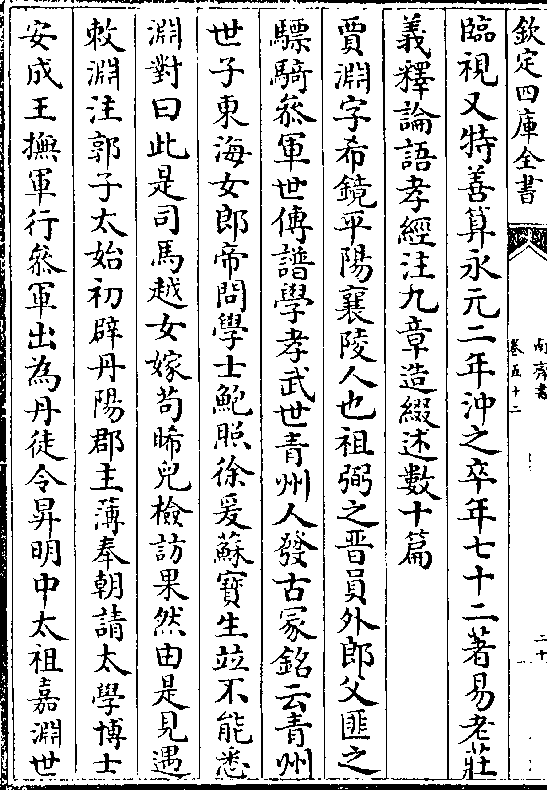 欽定四庫全書
南齊書
卷五十二
二十
臨視又特善算永元二年沖之卒年七十二著易老莊
義釋論語孝經注九章造綴述數十篇
賈淵字希鏡平陽襄陵人也祖弼之晉員外郎父匪之
驃騎叅軍世傳譜學孝武世青州人發古冢銘云青州
世子東海女郎帝問學士鮑照徐爰蘇寶生竝不能悉
淵對曰此是司馬越女嫁苟晞兒檢訪果然由是見遇
敕淵注郭子太始初辟丹陽郡主薄奉朝請太學博士
安成王撫軍行叅軍出為丹徒令昇明中太祖嘉淵世